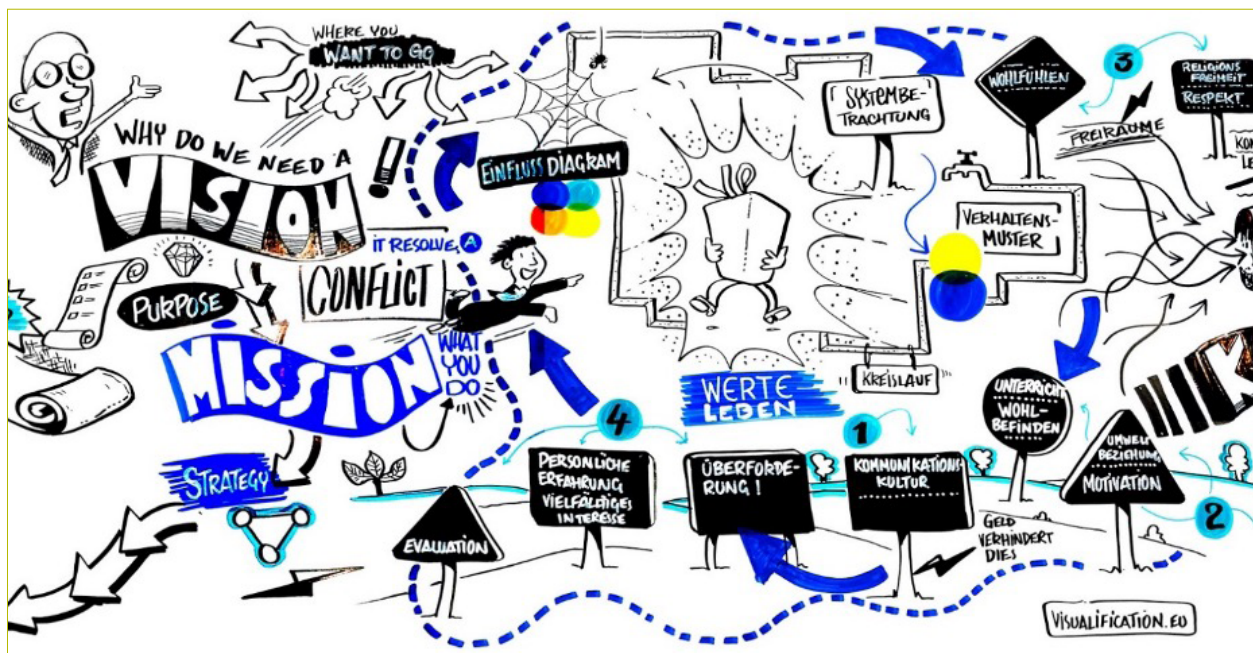 WHERE YOU
WANT TO GO
WHY DO WE NEED A
VISION
IT RESOLVE, A
CONFLICT
PURPOSE
MISSION
WHAT
YOU
DO
STRATEGY
EINFLUSS DIAGRAM
SYSTEMBE-
TRACHTUNG
WOHLFÜHLEN
3
RELIGIONS
FREIHEIT
RESPEKT
FREIRÄUME
VERHALTENS-
MUSTER
KREISLAUF
WERTE
LEBEN
4
PERSÖNLICHE
ERFAHRUNG
VIELFÄLTIGES
INTERESSE
ÜBERFORDE-
RUNG!
1
KOMMUNIKATIONS
KULTUR
UNTERRICHT
WOHL-
BEFINDEN
UMWELT
BEZIEHUNG
MOTIVATION
2
EVALUATION
GELD
VERHINDERT
DIES
VISUALIFICATION.EU